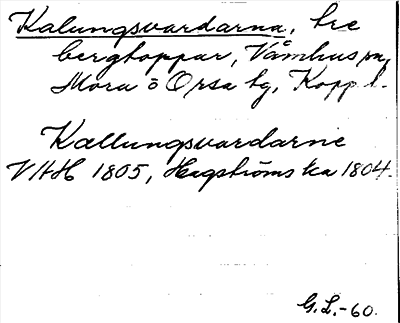 Kalungsvardarna, tre
bergtoppar, Våmhus sn,
Mora o Orsa tg, Kopp l.
Kællungsvardarne
VHH 1805, Hagströms ka 1804.
G.L.-60.